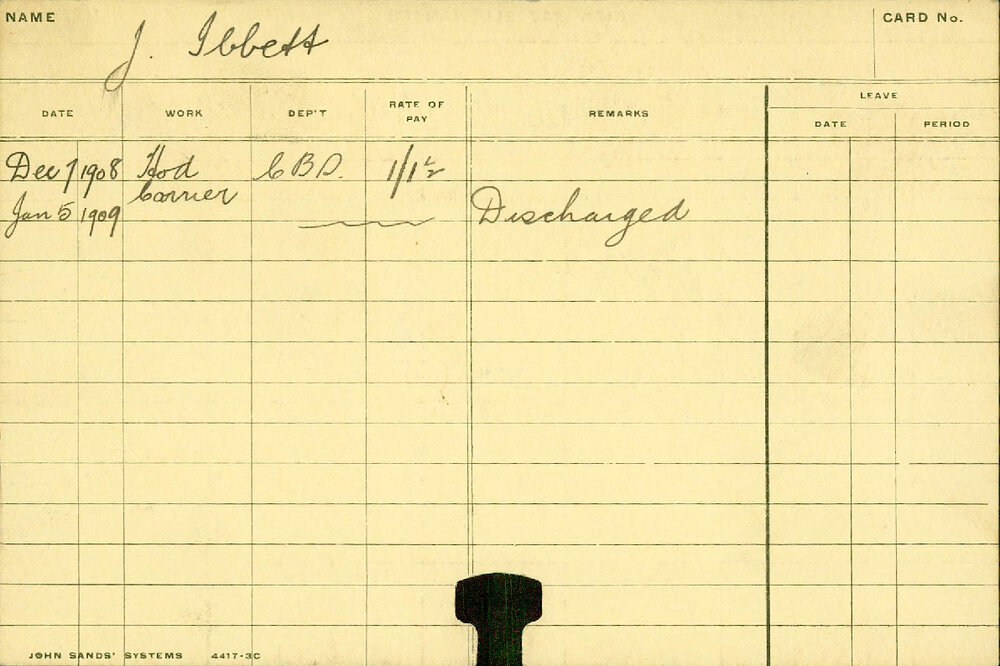 NAME J. Ibbett CARD No.
LEAVE
DATE WORK DEP'T RATE OF PAY REMARKS DATE PERIOD
Dec 7 1908 Hod C.B.D. 1/1½
Carrier
Jan 5 1909 Discharged
JOHN SANDS' SYSTEMS 4417-3C